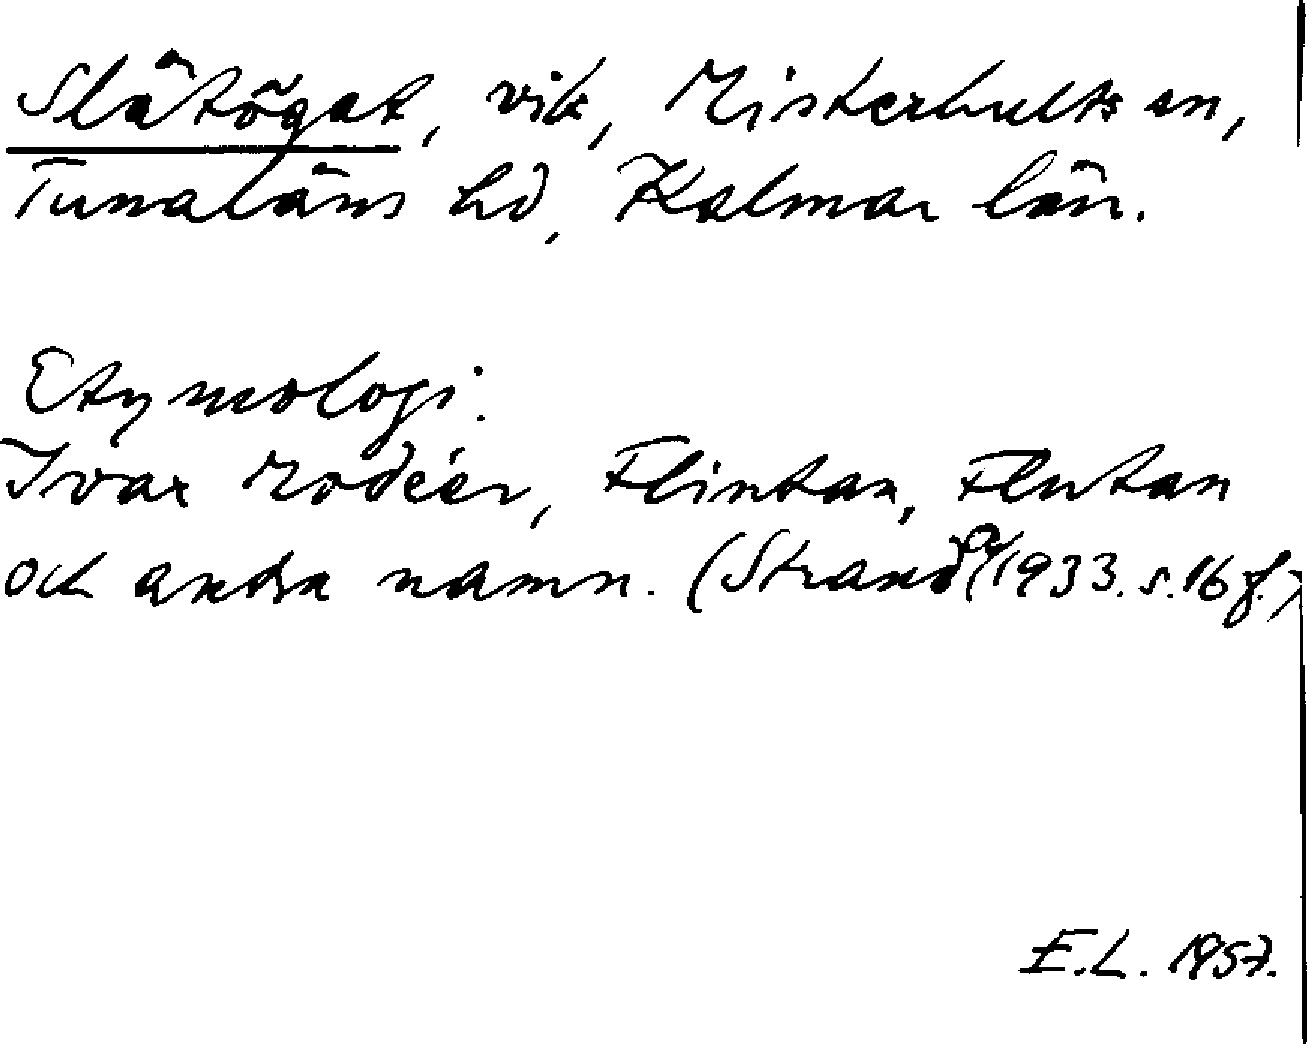 Slätögat, vik, Misterhults sn,
Tunaläns hd, Kalmar län.
Etymologi:
Ivar Modéer, Flintan, Flutan
och andra namn. (Strand 1933. s. 16 f.)
E.L. 1957.